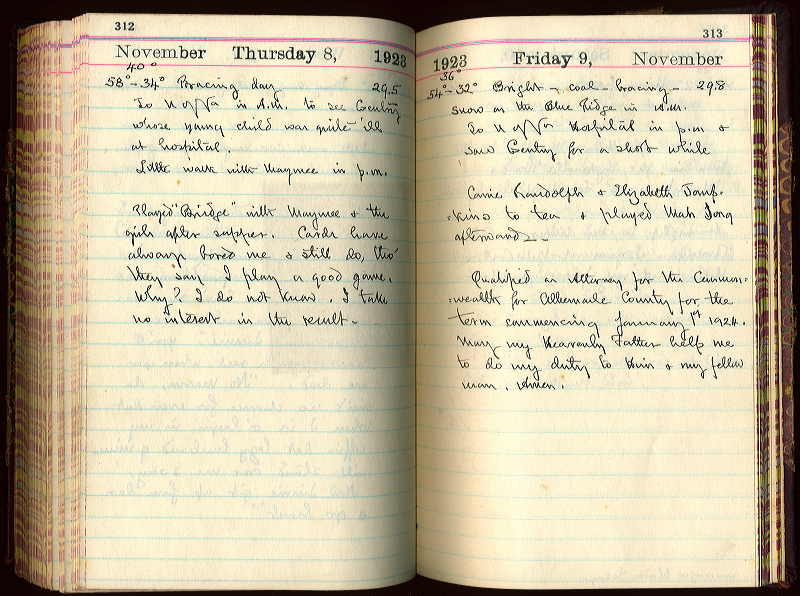 312
November Thursday 8, 1923
40°
58°-34° Bracing day 29.5
To U of Va in A.M. to see Gentry
whose young child was quite ill
at hospital.
Little walk with Maymee in p.m.
Played "Bridge" with Maymee & the
girls after supper. Cards have
always bored me & still do, tho'
they say I play a good game.
Why? I do not know. I take
no interest in the result-
313
1923 Friday 9, November
36°
54°-32° Bright - cool - bracing - 29.8
snow on the Blue Ridge in A.M.
To U of Va Hospital in p.m &
saw Gentry for a short while
Carrie Randolph & Elizabeth Tomp-
-kins to tea & played Mah Jong
afterwards-
Qualified as Attorney for the Common=
=wealth for Albemarle County for the
term commencing January 1st 1924.
May my Heavenly Father help me
to do my duty to Him & my fellow
man. Amen.